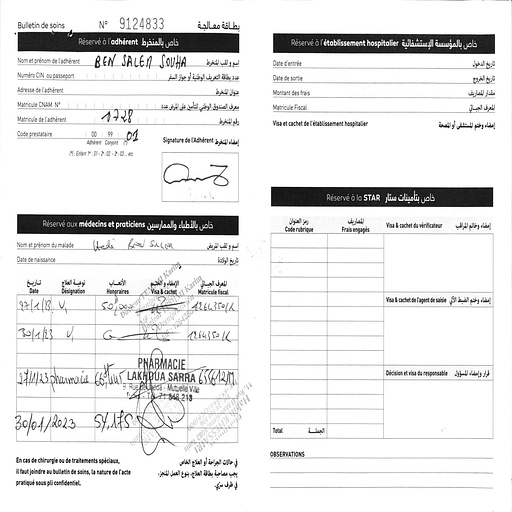 Bulletin de soins N° 9124833 بطاقة معالجة
Réservé à l'adhérent خاص بالمنخرط
Nom et prénom de l'adhérent BEN SALEM SOUHA اسم و لقب المنخرط
Numéro CIN ou passeport عدد بطاقة التعريف الوطنية أو جواز السفر
Adresse de l'adhérent عنوان المنخرط
Matricule CNAM N° معرف الصندوق الوطني للتأمين على المرض عدد
Matricule de l'adhérent 1728 رقم المنخرط
Code prestataire 00 99 01
Adhérent Conjoint (*)
(*) : Enfant 1er : 01 - 2 : 02 - 3 : 03 ... etc
Signature de l'Adhérent إمضاء المنخرط
Réservé aux médecins et praticiens خاص بالأطباء والممارسين
Nom et prénom du malade BEN SALEM اسم و لقب المريض
Date de naissance تاريخ الولادة
تاريخ نوعية العلاج الأتعاب الإمضاء و الختم المعرف الجبائي
Date Désignation Honoraires Visa & cachet Matricule fiscal
50,000
30/1/23
PHARMACIE
27/1/23 pharmacie LAKHOUA SARRA
Mutuelle Ville
Tél. 71
30/01/2023 54,175
En cas de chirurgie ou de traitements spéciaux,
il faut joindre au bulletin de soin, la nature de l'acte
pratiqué sous pli confidentiel.
في حالات الجراحة أو العلاج الخاص
يجب مصاحبة بطاقة العلاج، بنوع العمل المنجز،
في ظرف سري.
Réservé à l'établissement hospitalier خاص بالمؤسسة الإستشفائية
Date d'entrée تاريخ الدخول
Date de sortie تاريخ الخروج
Montant des frais مقدار المصاريف
Matricule Fiscal المعرف الجبائي
Visa et cachet de l'établissement hospitalier إمضاء وختم المستشفى أو المصحة
Réservé à la STAR خاص بتأمينات ستار
رمز العنوان المصاريف
Code rubrique Frais engagés
Visa & cachet du vérificateur إمضاء وخاتم المراقب
Visa & cachet de l'agent de saisie إمضاء وختم الضبط الآلي
Décision et visa du responsable قرار وإمضاء المسؤول
Total الجملة
OBSERVATIONS